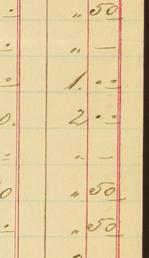 . " 50
- " —
- 1. " "
0. 2 " "
- " –
0 " 50
. " 50
"